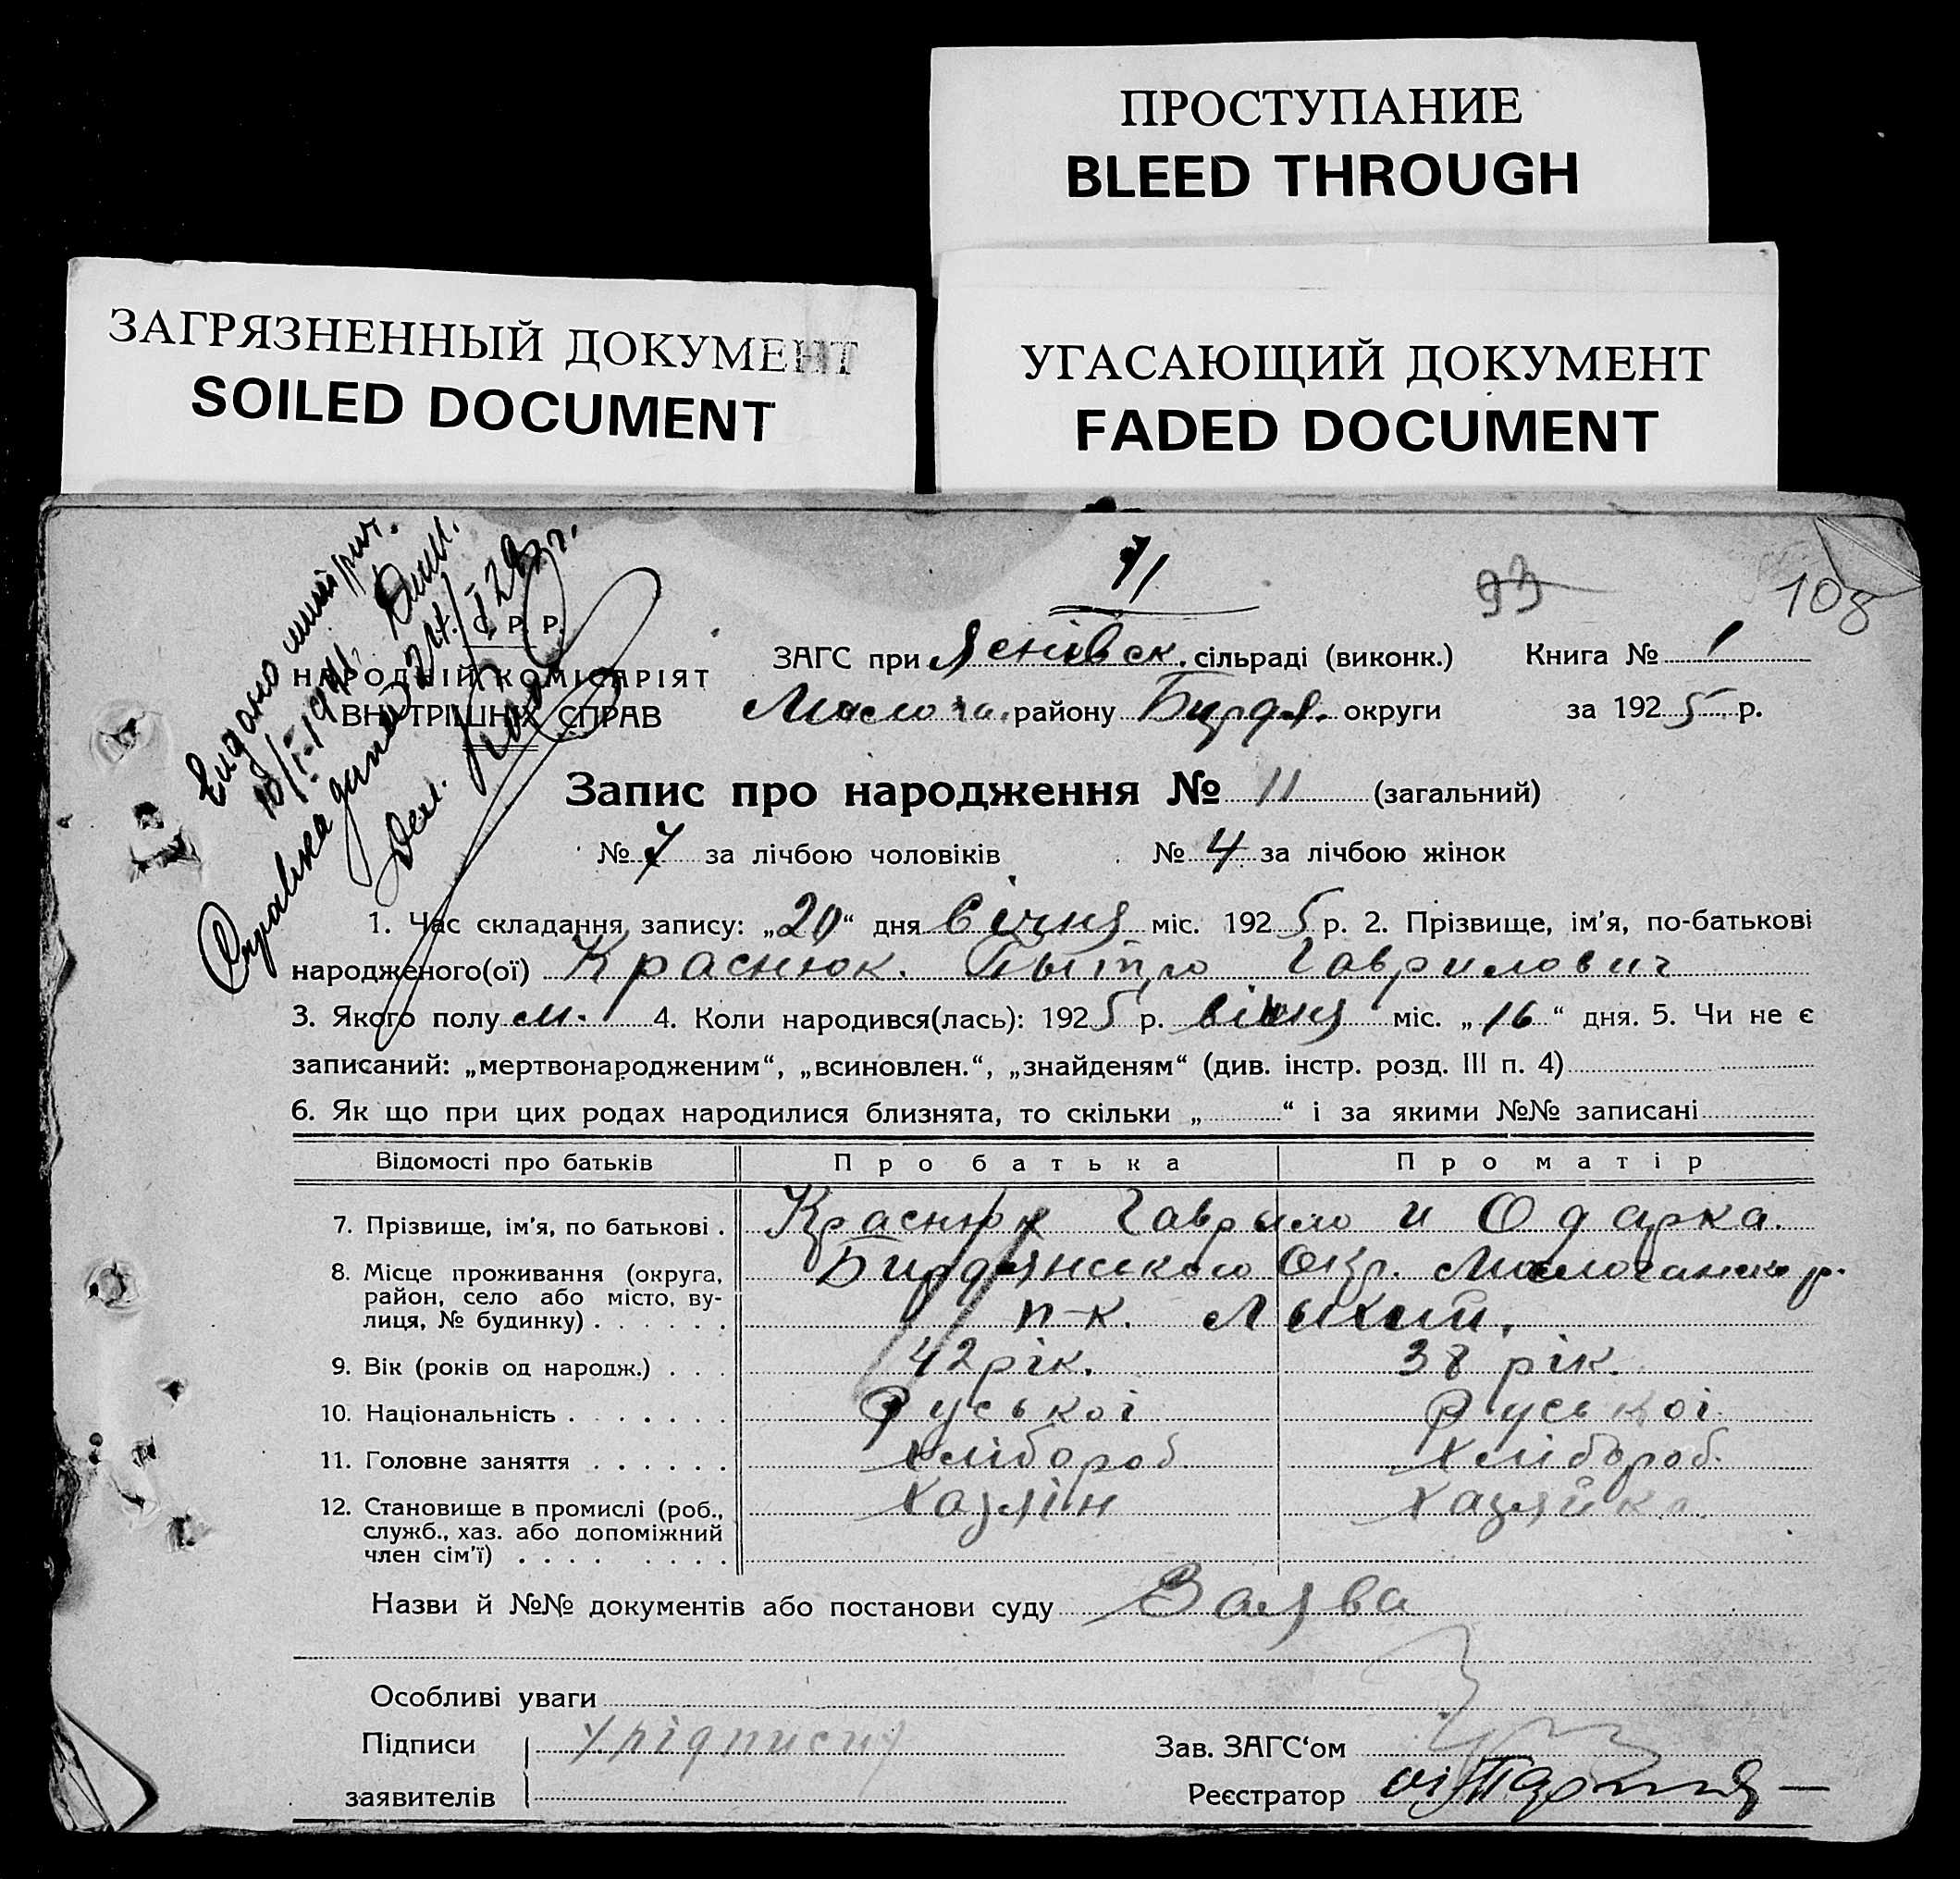 ПРОСТУПАНИЕ
BLEED THROUGH
ЗАГРЯЗНЕННЫЙ ДОКУМЕНТ
SOILED DOCUMENT
УГАСАЮЩИЙ ДОКУМЕНТ
FADED DOCUMENT
11
93
108
С. Р. Р.
НАРОДНІЙ КОМІСАРІЯТ
ВНУТРІШНІХ СПРАВ
ЗАГС при Ясенівск. сільраді (виконк.) Книга № 1
району Бирдя. округи за 1925 р.
Запис про народження № 11 (загальний)
№ 7 за лічбою чоловіків № 4 за лічбою жінок
1. Час складання запису: „20“ дня Січня міс. 1925 р. 2. Прізвище, ім’я, по-батькові
народженого(ої) Краснюк. Пытро Гаврилович
3. Якого полу м. 4. Коли народився(лась): 1925 р. січня міс. „16“ дня. 5. Чи не є
записаний: „мертвонародженим“, „всиновлен.“, „знайденям“ (див. інстр. розд. III п. 4)
6. Як що при цих родах народилися близнята, то скільки „ “ і за якими №№ записані
Відомості про батьків Про батька Про матір
7. Прізвище, ім’я, по батькові . Краснюк Гаврило и Одарка.
8. Місце проживання (округа, Бирдянського Окр.
район, село або місто, ву-
лиця, № будинку) . . . . . . п-к.
9. Вік (років од народж.) . . . 42 рік. 38 рік.
10. Національність . . . . . . . Руської Руської
11. Головне заняття . . . . . . Хлібороб Хлібороб.
12. Становище в промислі (роб., Хазяін Хазяйка.
служб., хаз. або допоміжний
член сім’ї) . . . . . . . .
Назви й №№ документів або постанови суду Заява
Особливі уваги
Підписи Зав. ЗАГС‘ом
заявителів Реєстратор